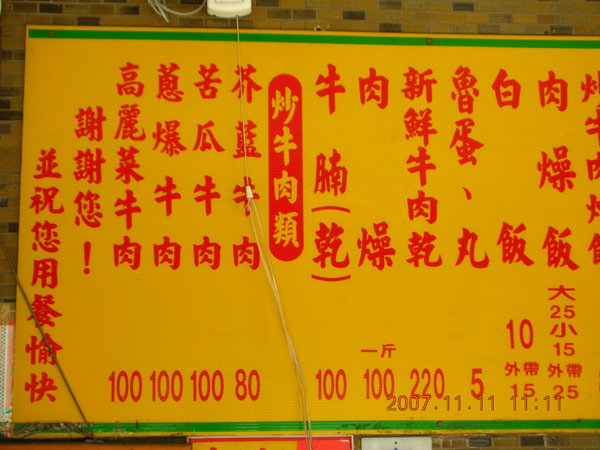 肉燥飯 大25 小15 外帶25
白飯 10 外帶15
魯蛋、丸 5
新鮮牛肉乾 220
肉燥 一斤 100
牛腩(乾) 100
炒牛肉類
芥藍牛肉 80
苦瓜牛肉 100
蔥爆牛肉 100
高麗菜牛肉 100
謝謝您!
並祝您用餐愉快
2007.11.11 11:11